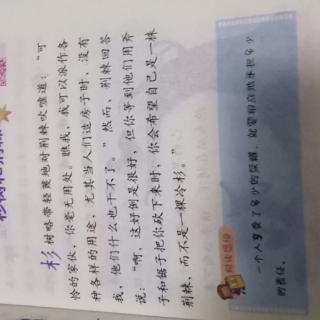 杉树略带轻蔑地对荆棘吹嘘道：“可
怜的家伙，你毫无用处。瞧我，我可以派作各
种各样的用途，尤其当人们造房子时，没有
我，他们什么也干不了。”然而，荆棘回答
说：“啊，这好倒是很好，但你等到他们用斧
子和锯子把你砍下来时，你会希望自己是一棵
荆棘，而不是一棵冷杉。”
阅读感悟
一个人享受了多少的荣耀，就要相应地承担多少
的责任。